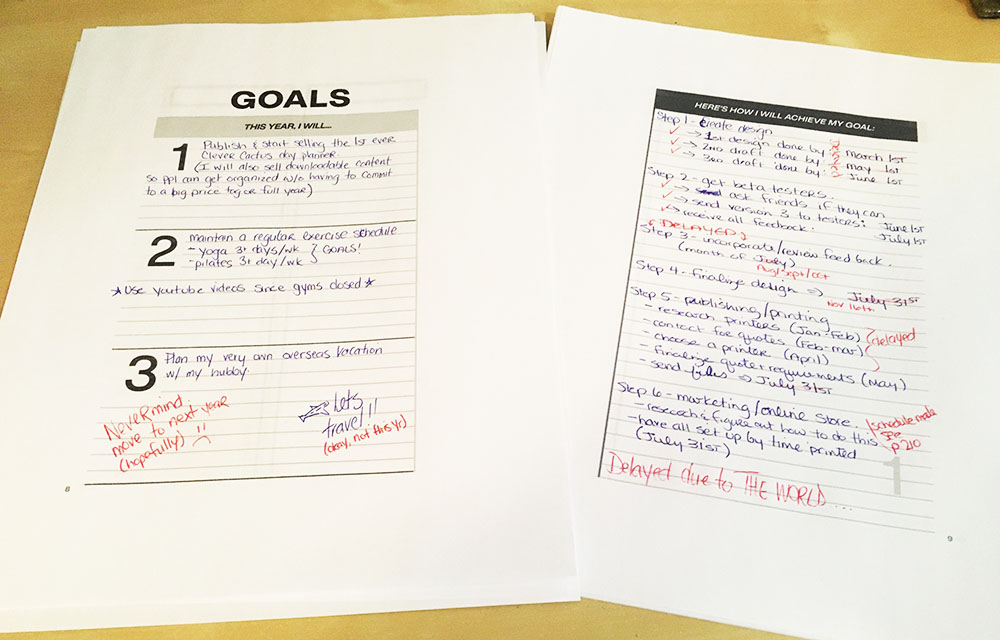 GOALS
THIS YEAR, I WILL...
1 Publish & start selling the 1st ever
Clever Cactus day planner
(I will also sell downloadable content
so ppl can get organized w/o having to commit
to a big price tag or full year)
2 Maintain a regular exercise schedule
- yoga 3+ days/wk } GOALS!
- pilates 3+ day/wk
★ Use youtube videos since gyms closed ★
3 Plan my very own overseas vacation
w/ my hubby
Nevermind
move to next year
(hopefully) !! :(
Lets
travel!!
(okay, not this yr)
8
HERE'S HOW I WILL ACHIEVE MY GOAL:
Step 1 - Create design
✓ → 1st design done by: March 1st
✓ → 2nd draft done by: May 1st
✓ → 3rd draft done by: June 1st
Step 2 - get beta testers
✓ → ask friends if they can
✓ → send version 3 to testers: June 1st
✓ → receive all feedback. July 1st
{ DELAYED }
Step 3 - incorporate/review feedback.
(month of July)
Aug/Sept/Oct
Step 4 - finalize design ⇒ July 31st
Nov 16th
Step 5 - publishing/printing
- research printers (Jan-Feb)
- contact for quotes (Feb-mar) } delayed
- choose a printer (April)
- finalize quote requirements (May)
- send files ⇒ July 31st
Step 6 - marketing/online store
- research & figure out how to do this
- have all set up by time printed
(July 31st)
(schedule made
p 210
Delayed due to THE WORLD...
1
9